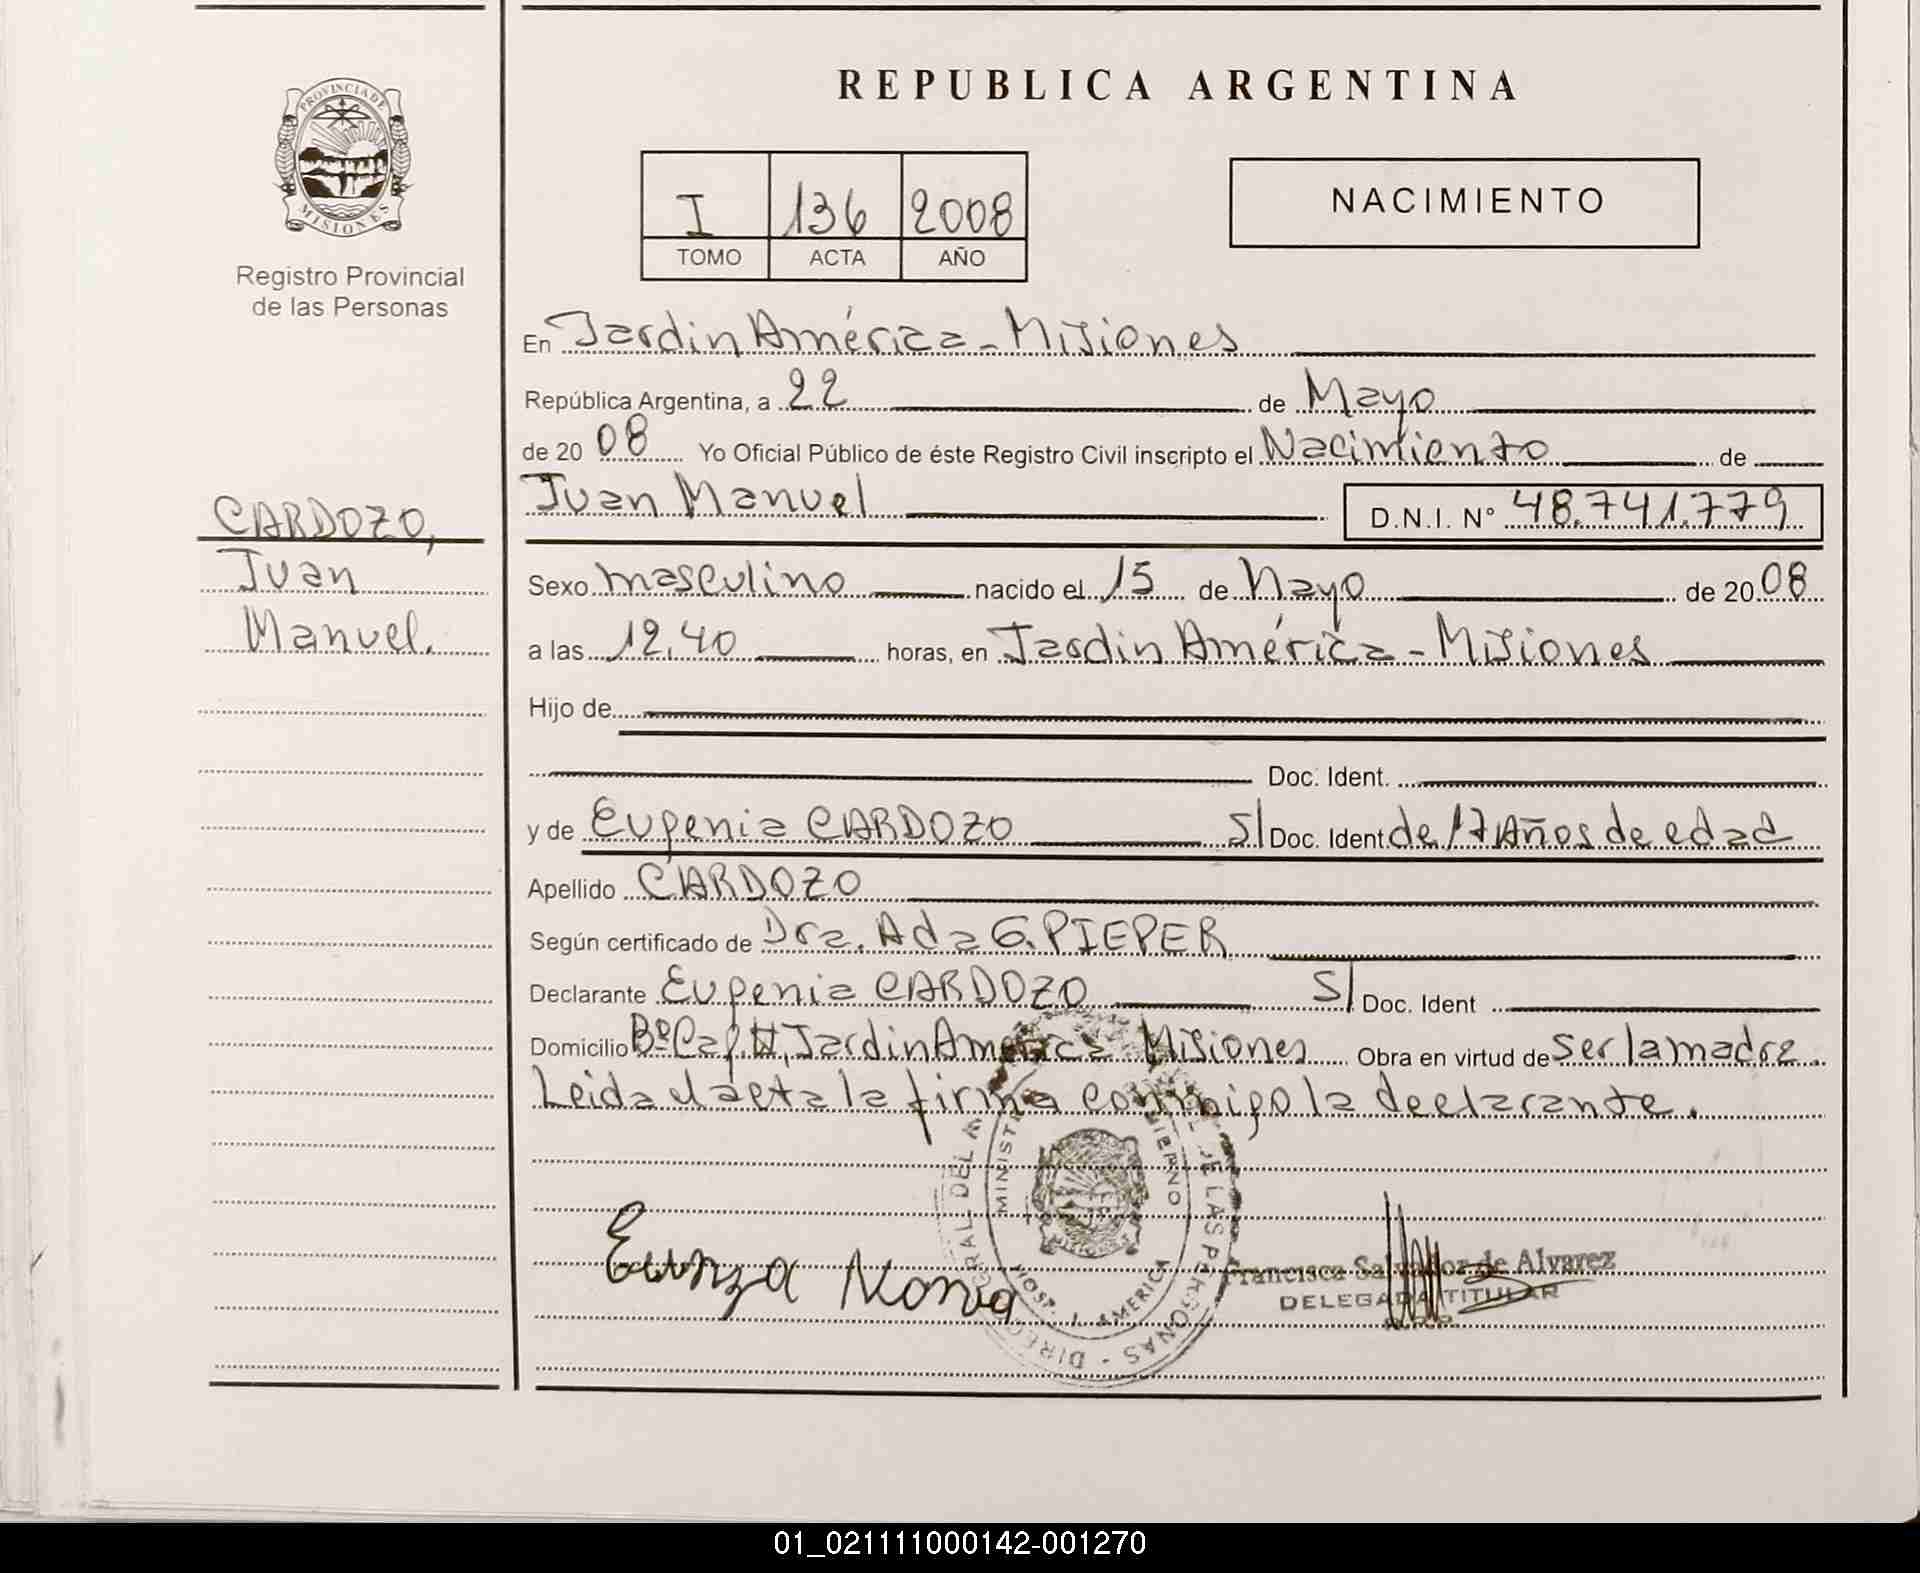 REPUBLICA ARGENTINA
PROVINCIA DE
MISIONES
Registro Provincial
de las Personas
I 136 2008
TOMO ACTA AÑO
NACIMIENTO
En Jardin América - Misiones
República Argentina, a 22 de Mayo
de 20 08 Yo Oficial Público de éste Registro Civil inscripto el Nacimiento de
Juan Manuel D.N.I. Nº 48.741.779
CARDOZO,
Juan
Manuel.
Sexo masculino nacido el 15 de Mayo de 20 08
a las 12,40 horas, en Jardin América - Misiones
Hijo de
Doc. Ident.
y de Eugenia CARDOZO S/ Doc. Ident. de 17 Años de edad
Apellido CARDOZO
Según certificado de Dra. Ada G. PIEPER
Declarante Eugenia CARDOZO S/ Doc. Ident
Domicilio Bº Jardin America Misiones Obra en virtud de ser la madre.
Leida el acta la firma conmigo la declarante.
MINISTE
HOSP. J. AMERICA
DE LAS PERSONAS
Francisca Salvador de Alvarez
DELEGADA TITULAR
01_021111000142-001270